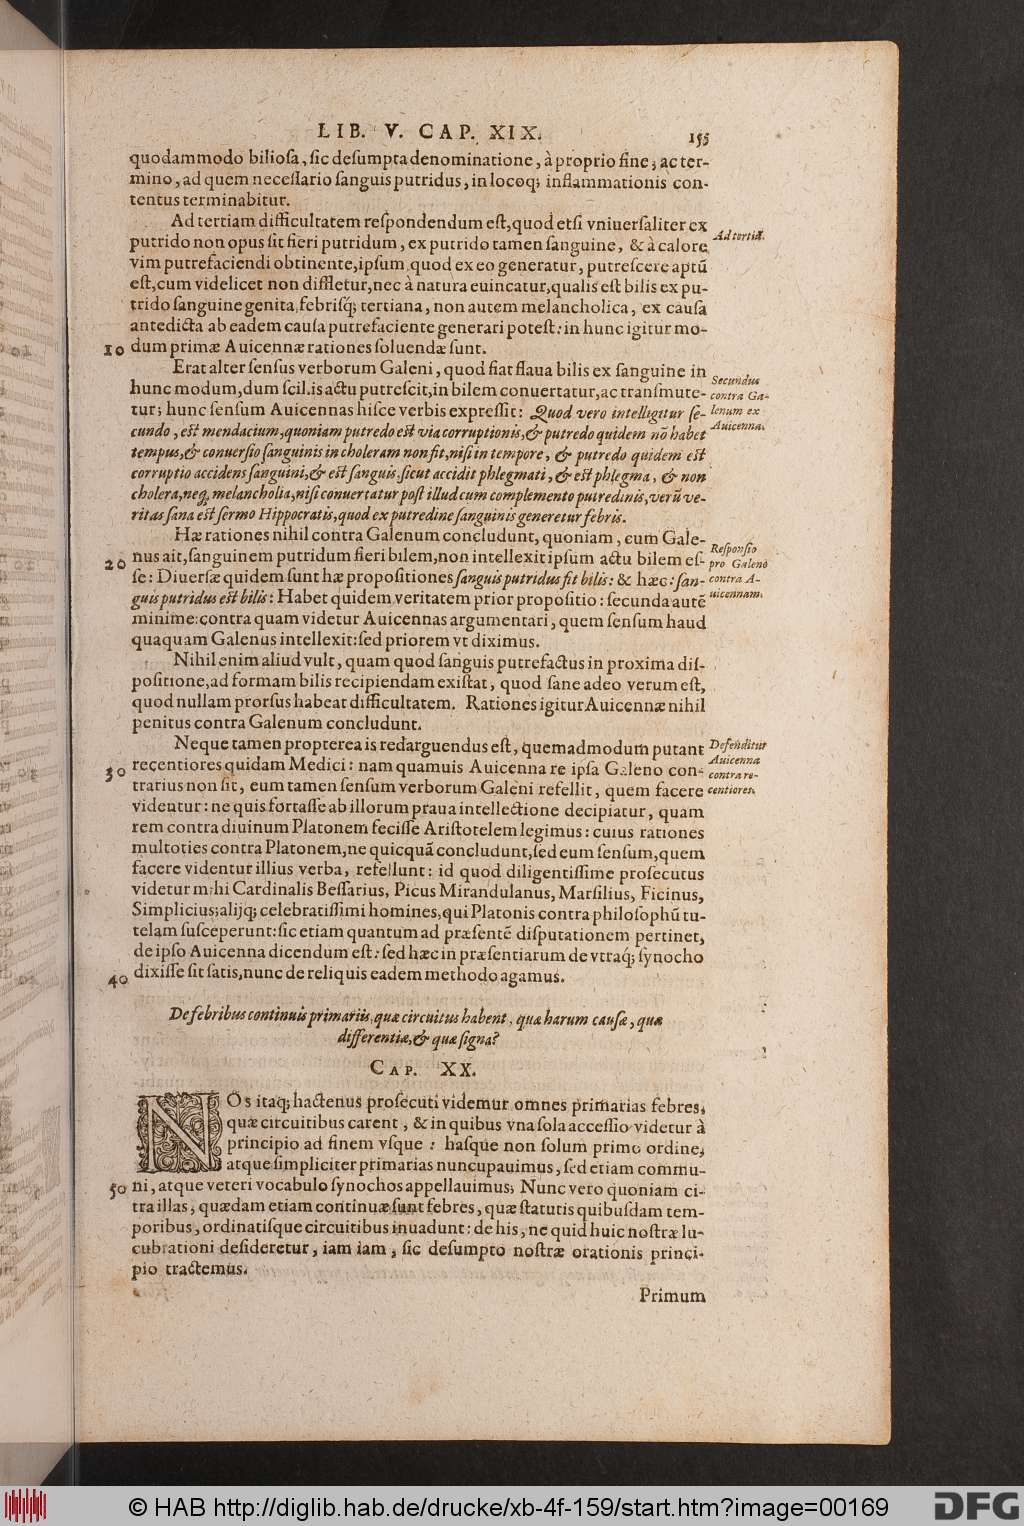 LIB. V. CAP. XIX. 155
quodammodo bilioſa, ſic deſumpta denominatione, à proprio fine, ac ter-
mino, ad quem neceſſario ſanguis putridus, in locoq; inflammationis con-
tentus terminabitur.
Ad tertiam difficultatem reſpondendum eſt, quod etſi vniuerſaliter ex
putrido non opus ſit fieri putridum, ex putrido tamen ſanguine, & à calore
Ad tertiã.
vim putrefaciendi obtinente, ipſum quod ex eo generatur, putreſcere aptũ
eſt, cum videlicet non diffletur, nec à natura euincatur, qualis eſt bilis ex pu-
trido ſanguine genita, febriſq́; tertiana, non autem melancholica, ex cauſa
antedicta ab eadem cauſa putrefaciente generari poteſt: in hunc igitur mo-
10 dum primæ Auicennæ rationes ſoluendæ ſunt.
Erat alter ſenſus verborum Galeni, quod fiat flaua bilis ex ſanguine in
hunc modum, dum ſcil. is actu putreſcit, in bilem conuertatur, ac tranſmute-
tur; hunc ſenſum Auicennas hiſce verbis expreſſit: Quod vero intelligitur ſe-
cundo, eſt mendacium, quoniam putredo eſt via corruptionis, & putredo quidem nõ habet
Secundus
contra Ga-
lenum ex
Auicenna.
tempus, & conuerſio ſanguinis in choleram non fit, niſi in tempore, & putredo quidem eſt
corruptio accidens ſanguini, & eſt ſanguis, ſicut accidit phlegmati, & eſt phlegma, & non
cholera, neq; melancholia, niſi conuertatur poſt illud cum complemento putredinis, verũ ve-
ritas ſana eſt ſermo Hippocratis, quod ex putredine ſanguinis generetur febris.
Hæ rationes nihil contra Galenum concludunt, quoniam, cum Gale-
20 nus ait, ſanguinem putridum fieri bilem, non intellexit ipſum actu bilem eſ-
ſe: Diuerſæ quidem ſunt hæ propoſitiones ſanguis putridus fit bilis: & hæc: ſan-
guis putridus eſt bilis: Habet quidem veritatem prior propoſitio: ſecunda autẽ
Reſponſio
pro Galeno
contra A-
uicennam.
minime: contra quam videtur Auicennas argumentari, quem ſenſum haud
quaquam Galenus intellexit: ſed priorem vt diximus.
Nihil enim aliud vult, quam quod ſanguis putrefactus in proxima diſ-
poſitione, ad formam bilis recipiendam exiſtat, quod ſane adeo verum eſt,
quod nullam prorſus habeat difficultatem. Rationes igitur Auicennæ nihil
penitus contra Galenum concludunt.
Neque tamen propterea is redarguendus eſt, quemadmodum putant
30 recentiores quidam Medici: nam quamuis Auicenna re ipſa Galeno con-
trarius non ſit, eum tamen ſenſum verborum Galeni refellit, quem facere
Defenditur
Auicenna
contra re-
centiores.
videutur: ne quis fortaſſe ab illorum praua intellectione decipiatur, quam
rem contra diuinum Platonem feciſſe Ariſtotelem legimus: cuius rationes
multoties contra Platonem, ne quicquã concludunt, ſed eum ſenſum, quem
facere videntur illius verba, refellunt: id quod diligentiſſime proſecutus
videtur mihi Cardinalis Beſſarius, Picus Mirandulanus, Marſilius, Ficinus,
Simplicius; alijq́; celebratiſſimi homines, qui Platonis contra philoſophũ tu-
telam ſuſceperunt: ſic etiam quantum ad præſentẽ diſputationem pertinet,
de ipſo Auicenna dicendum eſt: ſed hæc in præſentiarum de vtraq́; ſynocho
40 dixiſſe ſit ſatis, nunc de reliquis eadem methodo agamus.
De febribus continuis primariis, quæ circuitus habent, quæ harum cauſæ, quæ
differentiæ, & quæ ſigna?
CAP. XX.
NOs itaq; hactenus proſecuti videmur omnes primarias febres,
quæ circuitibus carent, & in quibus vna ſola acceſſio videtur à
principio ad finem vſque: haſque non ſolum primo ordine,
atque ſimpliciter primarias nuncupauimus, ſed etiam commu-
50 ni, atque veteri vocabulo ſynochos appellauimus; Nunc vero quoniam ci-
tra illas, quædam etiam continuæ ſunt febres, quæ ſtatutis quibuſdam tem-
poribus, ordinatiſque circuitibus inuadunt: de his, ne quid huic noſtræ lu-
cubrationi deſideretur, iam iam, ſic deſumpto noſtræ orationis princi-
pio tractemus.
Primum
© HAB http://diglib.hab.de/drucke/xb-4f-159/start.htm?image=00169
DFG